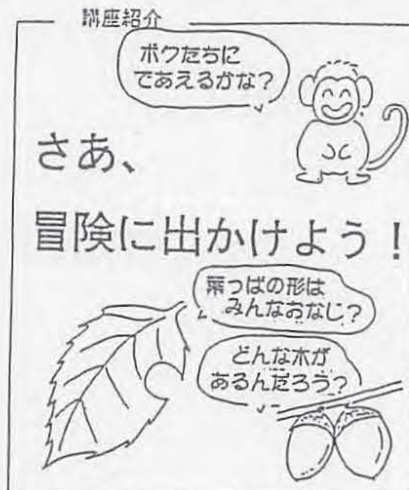 講座紹介
ボクたちに
であえるかな？
さあ、
冒険に出かけよう！
葉っぱの形は
みんなおなじ？
どんな木が
あるんだろう？